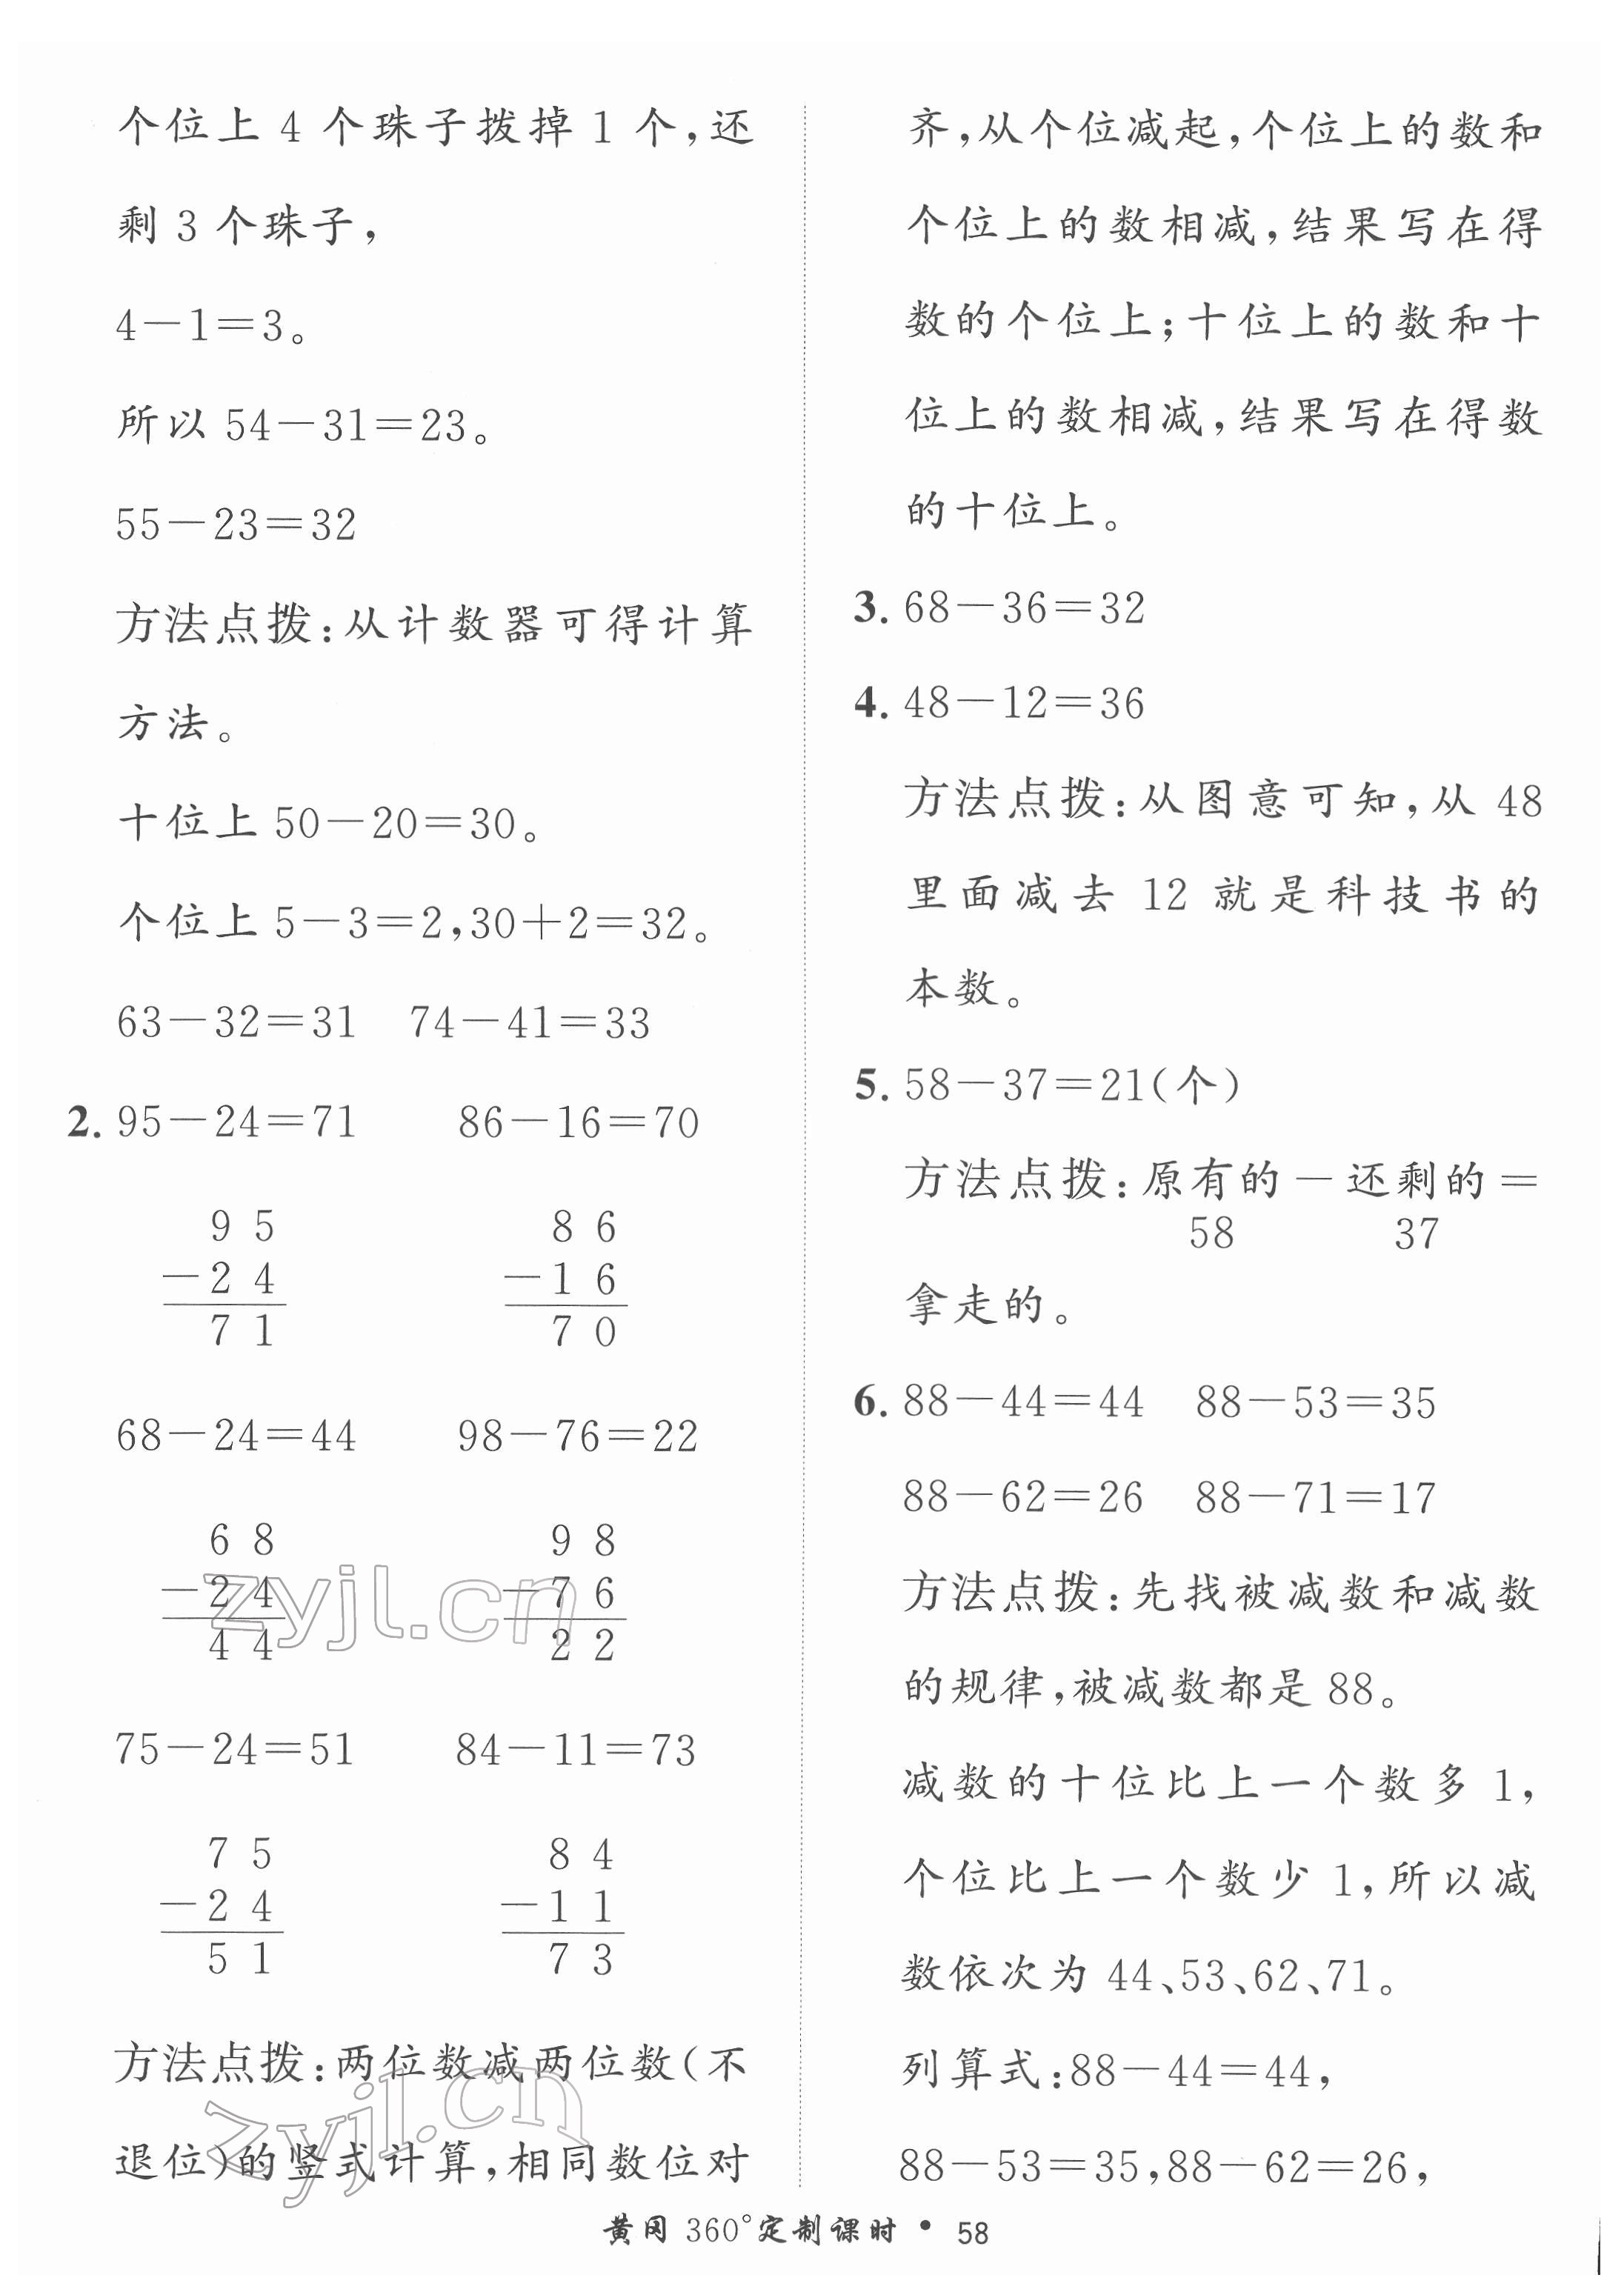 个位上 4 个珠子拨掉 1 个,还
剩 3 个珠子,
4-1=3。
所以 54-31=23。
55-23=32
方法点拨:从计数器可得计算
方法。
十位上 50-20=30。
个位上 5-3=2,30+2=32。
63-32=31 74-41=33
2. 95-24=71 86-16=70
9 5 8 6
-2 4 -1 6
7 1 7 0
68-24=44 98-76=22
6 8 9 8
-2 4 -7 6
4 4 2 2
zyjl.cn
75-24=51 84-11=73
7 5 8 4
-2 4 -1 1
5 1 7 3
方法点拨:两位数减两位数(不
退位)的竖式计算,相同数位对
zyjl.cn
齐,从个位减起,个位上的数和
个位上的数相减,结果写在得
数的个位上;十位上的数和十
位上的数相减,结果写在得数
的十位上。
3. 68-36=32
4. 48-12=36
方法点拨:从图意可知,从 48
里面减去 12 就是科技书的
本数。
5. 58-37=21(个)
方法点拨:原有的-还剩的=
58 37
拿走的。
6. 88-44=44 88-53=35
88-62=26 88-71=17
方法点拨:先找被减数和减数
的规律,被减数都是 88。
减数的十位比上一个数多 1,
个位比上一个数少 1,所以减
数依次为 44、53、62、71。
列算式:88-44=44,
88-53=35,88-62=26,
黄冈 360°定制课时 • 58